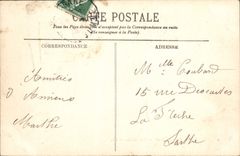 CARTE POSTALE
Tous les Pays étrangers n'acceptent pas la Correspondance au recto
(Se renseigner à la Poste)
CORRESPONDANCE
ADRESSE
Amitiés
d'Amiens
Marthe
Mlle Coubard
15 rue Descartes
La Flèche
Sarthe